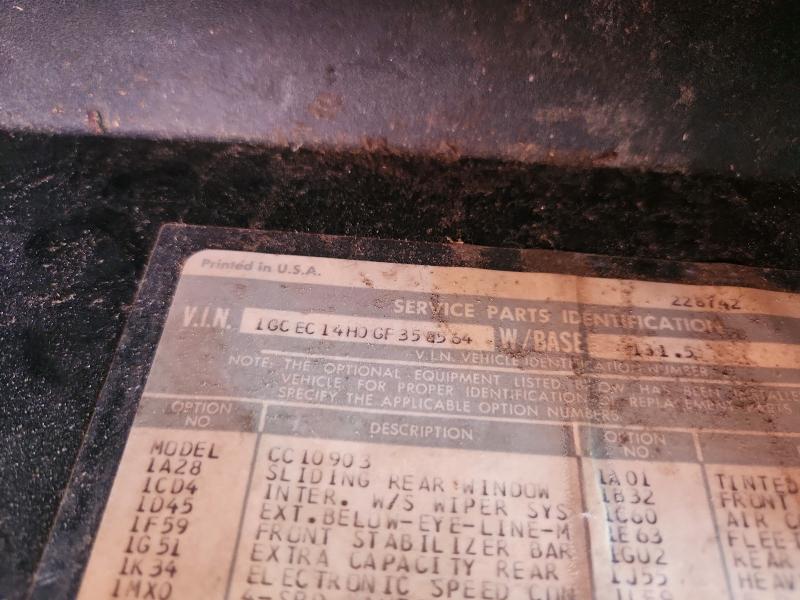 Printed in U.S.A.
226742
SERVICE PARTS IDENTIFICATION
V.I.N. W/BASE 131.5
V.I.N. VEHICLE IDENTIFICATION NUMBER
NOTE: THE OPTIONAL EQUIPMENT LISTED BELOW HAS BEEN INSTALLED
VEHICLE FOR PROPER IDENTIFICATION OF REPLACEMENT PARTS
SPECIFY THE APPLICABLE OPTION NUMBERS.
OPTION NO DESCRIPTION OPTION NO
MODEL CC10903
1A28 SLIDING REAR WINDOW 1A01 TINTED
1CD4 INTER. W/S WIPER SYS 1B32 FRONT
1D45 EXT.BELOW-EYE-LINE-M 1C60 AIR C
1F59 FRONT STABILIZER BAR 1E63 FLEET
1G51 EXTRA CAPACITY REAR 1GU2 REAR
1K34 ELECTRONIC SPEED CON 1J55 HEAV
1MX0 4-SPD